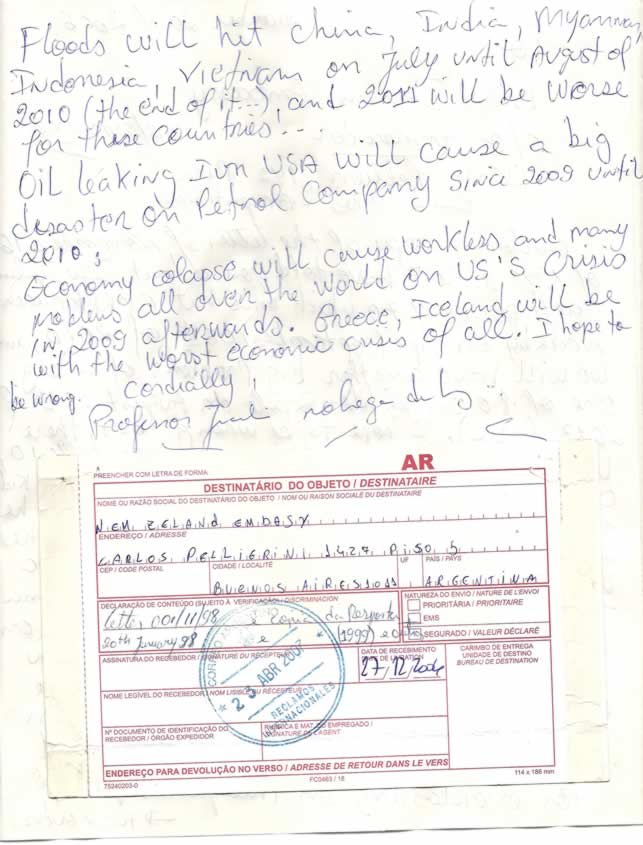 Floods will hit China, India, Myanmar,
Indonesia, Vietnam on July until August of
2010 (the end of it...), and 2011 will be worse
for these countries...
Oil leaking Ivn USA will cause a big
desaster on Petrol Company since 2009 until
2010;
Economy colapse will cause workless and many
problems all over the world on US'S Crisis
in 2009 afterwards. Greece, Iceland will be
with the worst economic crisis of all. I hope to
be wrong. Cordially,
Professor
AR
PREENCHER COM LETRA DE FORMA
DESTINATÁRIO DO OBJETO / DESTINATAIRE
NOME OU RAZÃO SOCIAL DO DESTINATÁRIO DO OBJETO / NOM OU RAISON SOCIALE DU DESTINATAIRE
NEW ZELAND EMBASY
ENDEREÇO / ADRESSE
CARLOS PELLIERINI 1427 PISO 5
CEP / CODE POSTAL CIDADE / LOCALITÉ UF PAÍS / PAYS
BUENOS AIRES ARGENTINA
DECLARAÇÃO DE CONTEÚDO (SUJEITO À VERIFICAÇÃO) / DISCRIMINACION NATUREZA DO ENVIO / NATURE DE L'ENVOI
letter, nov/11/98 e da Resposta PRIORITÁRIA / PRIORITAIRE
EMS
20th January 98 e (1999) SEGURADO / VALEUR DÉCLARÉ
ASSINATURA DO RECEBEDOR / SIGNATURE DU RÉCEPTEUR DATA DE RECEBIMENTO CARIMBO DE ENTREGA
UNIDADE DE DESTINO
BUREAU DE DESTINATION
27/12/2006
23 ABR 2007
RECLAMOS INTERNACIONALES
NOME LEGÍVEL DO RECEBEDOR / NOM LISIBLE DU RÉCEPTEUR
Nº DOCUMENTO DE IDENTIFICAÇÃO DO RECEBEDOR / ÓRGÃO EXPEDIDOR RUBRICA E MAT. DO EMPREGADO / SIGNATURE DE L'AGENT
ENDEREÇO PARA DEVOLUÇÃO NO VERSO / ADRESSE DE RETOUR DANS LE VERS
75240203-0 FC0463 / 16 114 x 186 mm